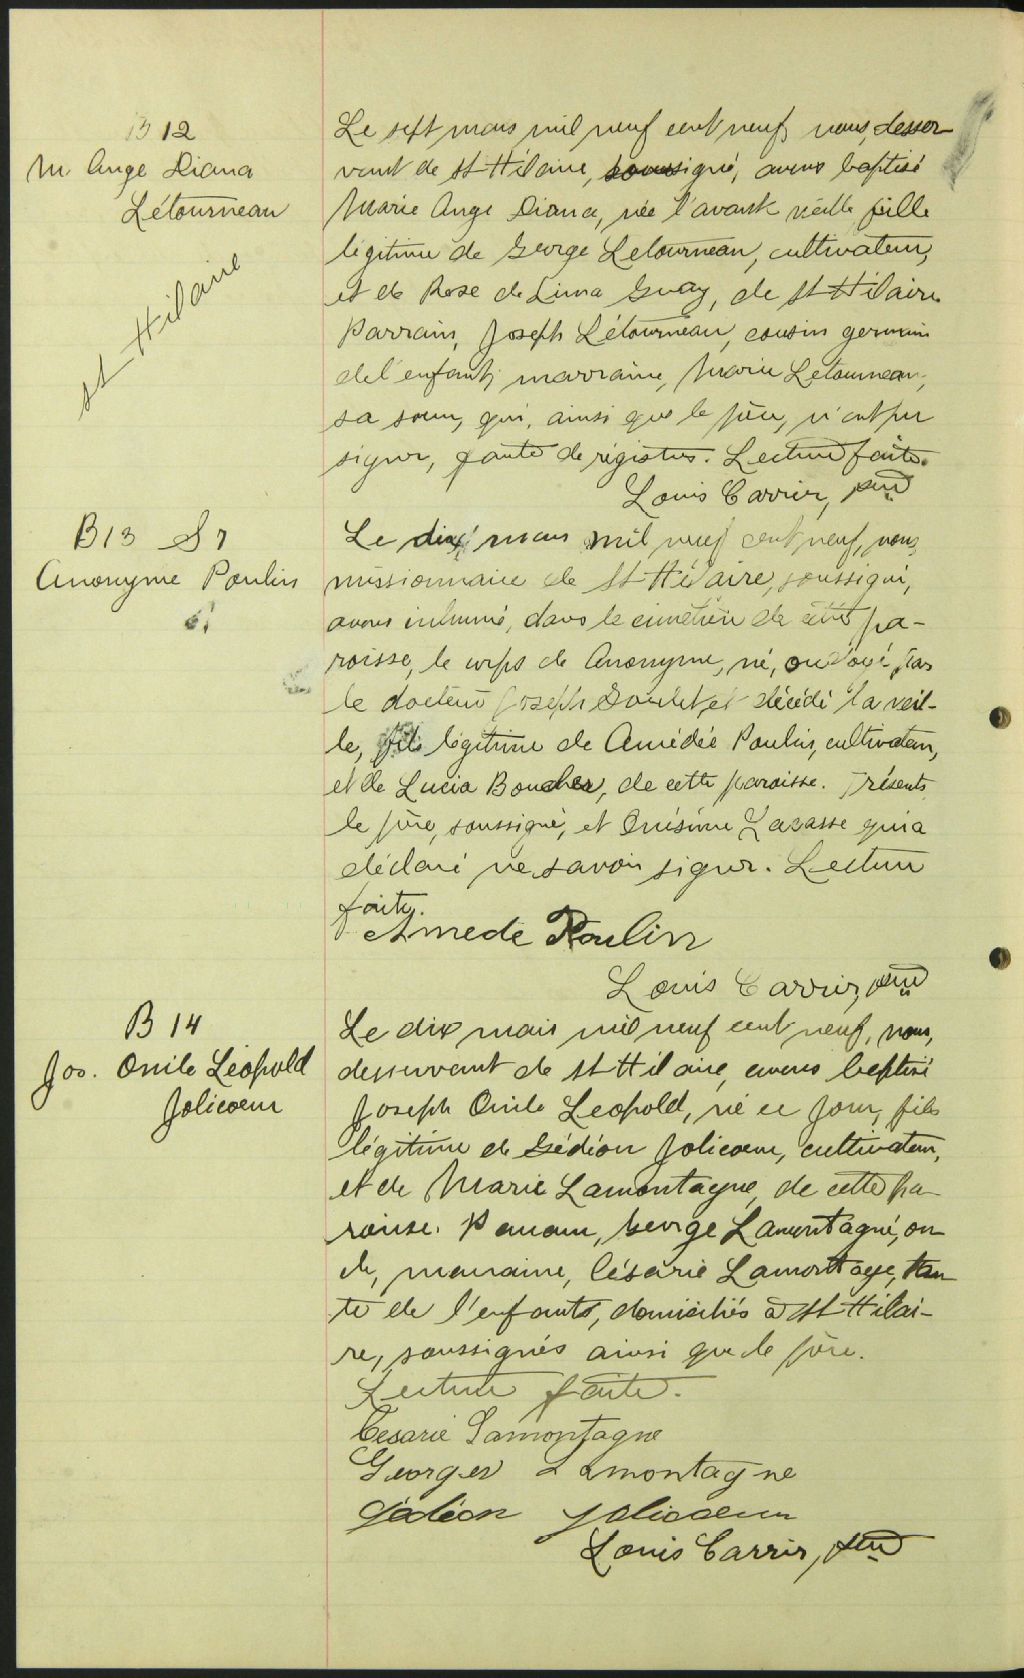 B 12
M. Ange Diana
Létourneau
St Hilaire
Le sept mars mil neuf cent neuf, nous, desser-
vant de St Hilaire, soussigné, avons baptisé
Marie Ange Diana, née l'avant veille, fille
légitime de George Letourneau, cultivateur,
et de Rose de Lima Guay, de St Hilaire.
Parrain, Joseph Létourneau, cousin germain
de l'enfant, marraine, Marie Letourneau,
sa soeur, qui, ainsi que le père, n'ont pu
signer, faute de régistres. Lecture faite.
Louis Carrier, ptre
B13 S7
Anonyme Poulin
Le dix mars mil neuf cent neuf, nous,
missionnaire de St Hilaire, soussigné,
avons inhumé, dans le cimetière de cette pa-
roisse, le corps de Anonyme, né, ondoyé par
le docteur Joseph Goulet et décédé la veil-
le, fils légitime de Amédée Poulin, cultivateur,
et de Lucia Boucher, de cette paroisse. Présents
le père, soussigné, et Onésime Lacasse qui a
déclaré ne savoir signer. Lecture
faite.
Amede Poulin
Louis Carrier, ptre
B 14
Jos. Onile Léopold
Jolicoeur
Le dix mars mil neuf cent neuf, nous,
desservant de St Hilaire, avons baptisé
Joseph Onile Leopold, né ce jour, fils
légitime de Gédéon Jolicoeur, cultivateur,
et de Marie Lamontagne, de cette pa-
roisse. Parrain, George Lamontagne, on-
cle, marraine, Césarie Lamontage, tan-
te de l'enfant, domiciliés à St Hilai-
re, soussignés ainsi que le père.
Lecture faite.
Cesarie Lamontagne
Georges Lamontagne
Gédéon Jolicoeur
Louis Carrier, ptre